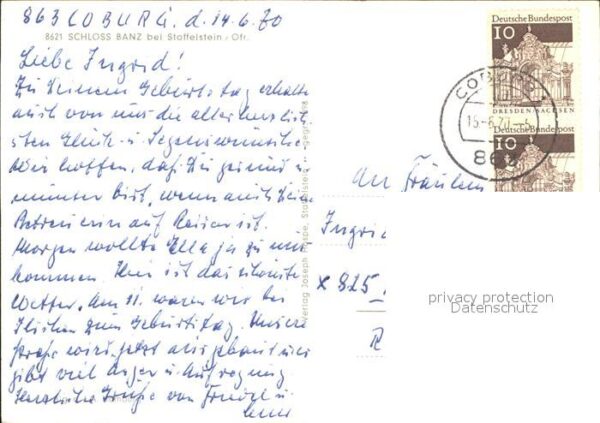 863 COBURG, d. 14.6.70
8621 SCHLOSS BANZ bei Staffelstein/Ofr.
Liebe Ingrid!
Zu Deinem Geburtstag erhalte
auch von uns die allerherzlich-
sten Glück- u. Segenswünsche
Wir hoffen, daß Du gesund u.
munter bist, wenn auch Deine
Betreuerin auf Reisen ist.
Morgen wollte Ella ja zu mir
kommen. Hier ist das schönste
Wetter. Am 11. waren wir bei
zum Geburtstag. Unsere
wird jetzt ausgebaut und
gibt viel Ärger u. Aufregung
Herzliche Grüße von u.
Verlag Joseph Staffelstein
Deutsche Bundespost
10
DRESDEN/SACHSEN
Deutsche Bundespost
10
COBURG
15.-6.70
863
An Fräulein
Ingrid
x 825
R
privacy protection
Datenschutz